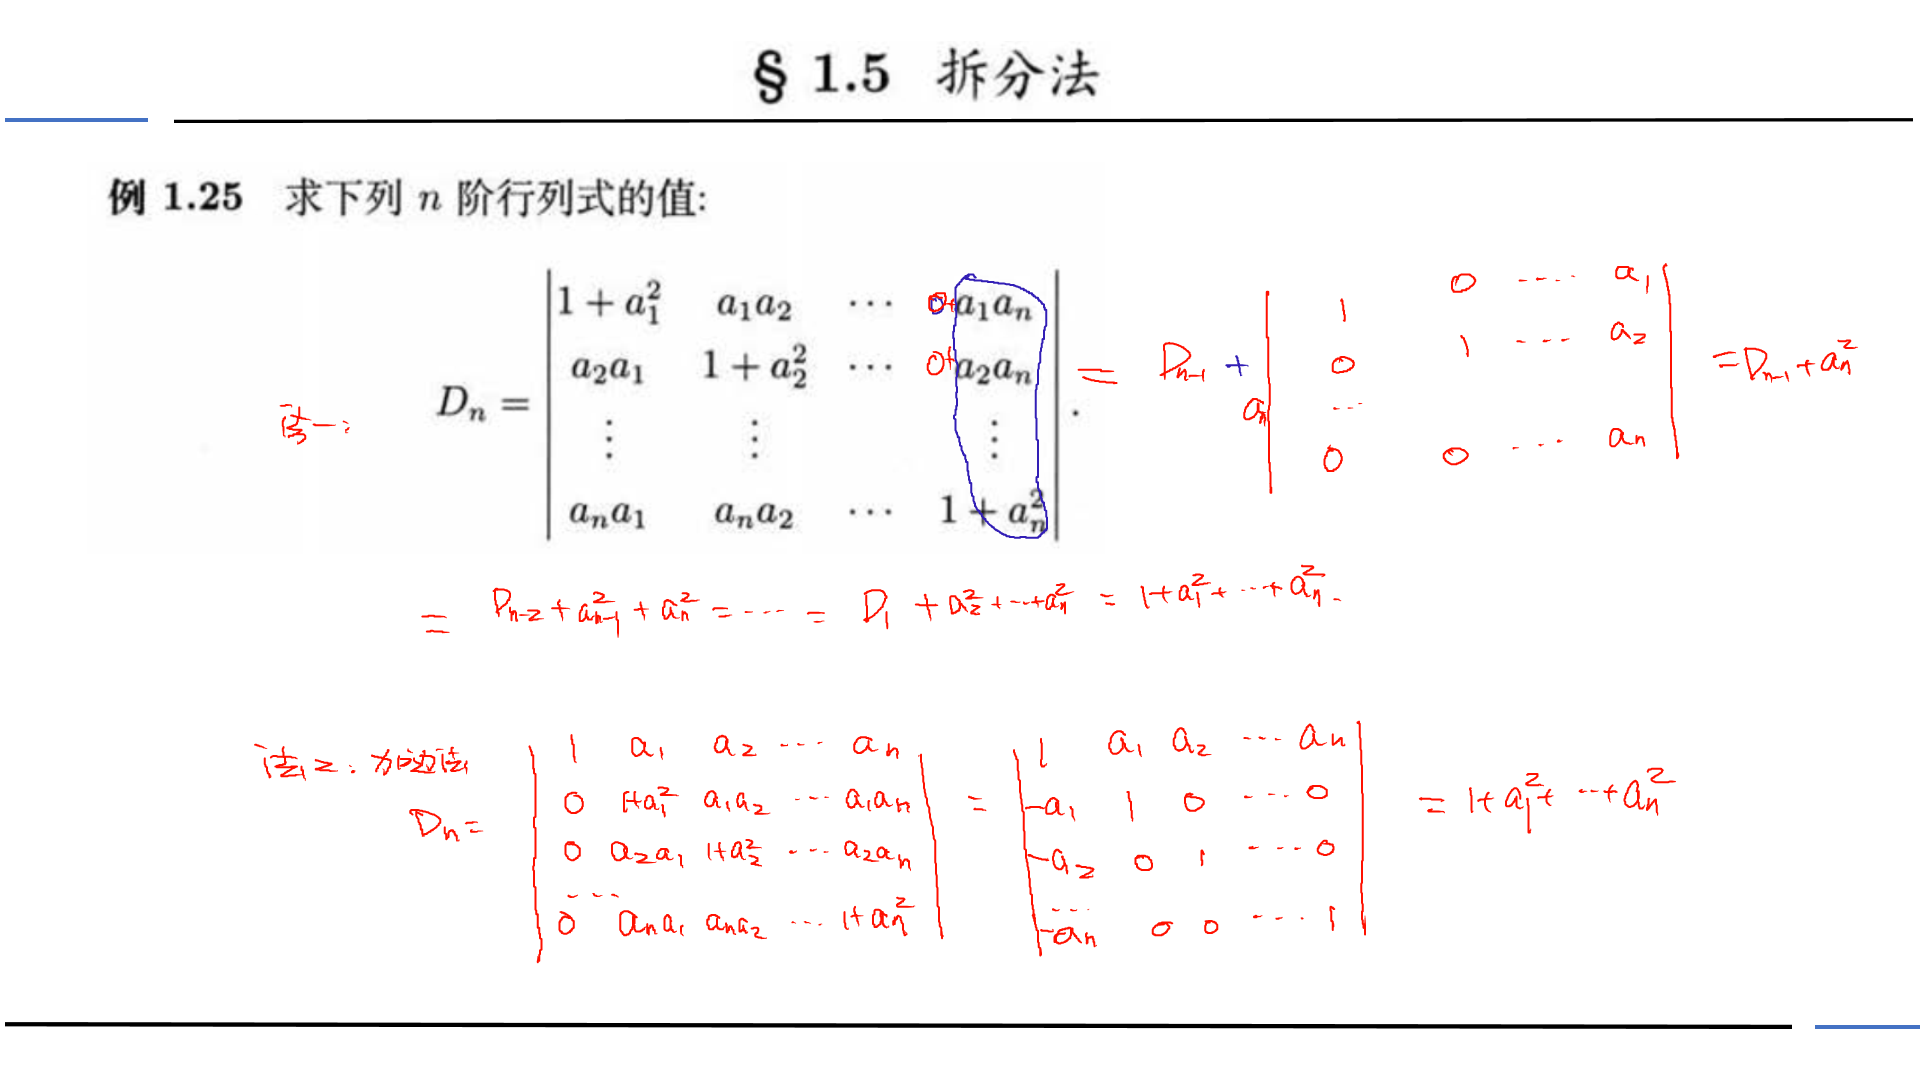 § 1.5 拆分法
例 1.25 求下列 n 阶行列式的值:
法一:
D_n = | 1 + a_1^2  a_1a_2  ⋯  0+ a_1a_n |
| a_2a_1  1 + a_2^2  ⋯  0+ a_2a_n |
| ⋮  ⋮  ⋮ |
| a_na_1  a_na_2  ⋯  1 + a_n^2 | .
= D_{n-1} + a_n | 1  0  ⋯  a_1 |
| 0  1  ⋯  a_2 |
| ⋯ |
| 0  0  ⋯  a_n |
= D_{n-1} + a_n^2
= D_{n-2} + a_{n-1}^2 + a_n^2 = ⋯ = D_1 + a_2^2 + ⋯ + a_n^2 = 1 + a_1^2 + ⋯ + a_n^2 .
法2: 加边法
D_n = | 1  a_1  a_2  ⋯  a_n |
| 0  1+a_1^2  a_1a_2  ⋯  a_1a_n |
| 0  a_2a_1  1+a_2^2  ⋯  a_2a_n |
| ⋯ |
| 0  a_na_1  a_na_2  ⋯  1+a_n^2 |
= | 1  a_1  a_2  ⋯  a_n |
| -a_1  1  0  ⋯  0 |
| -a_2  0  1  ⋯  0 |
| ⋯ |
| -a_n  0  0  ⋯  1 |
= 1 + a_1^2 + ⋯ + a_n^2